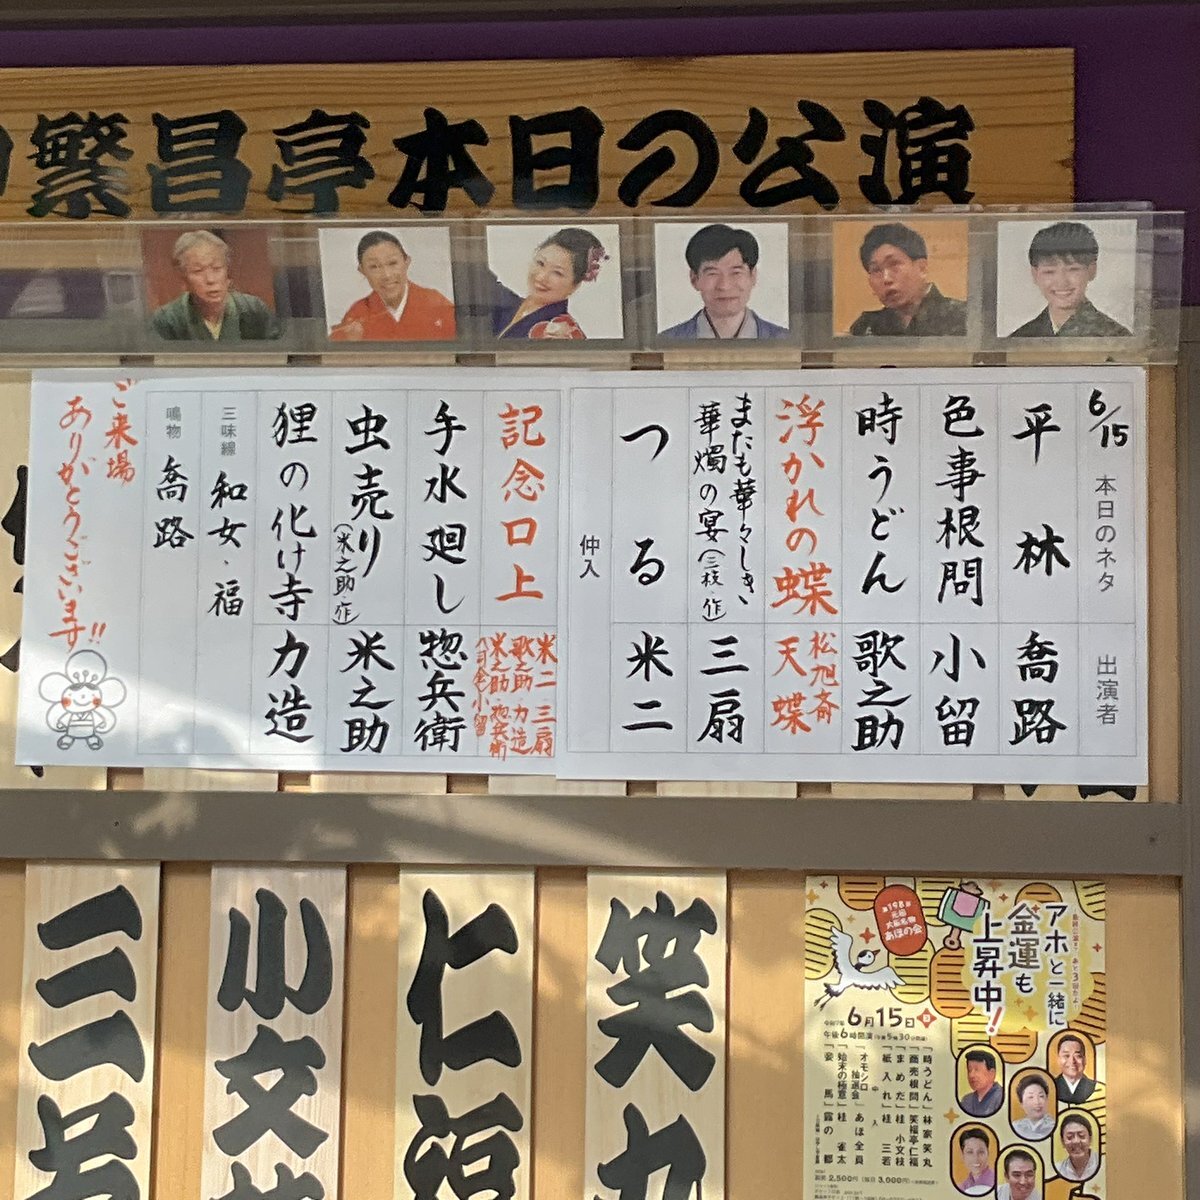 繁昌亭本日の公演
6/15
本日のネタ 出演者
平林 喬路
色事根問 小留
時うどん 歌之助
浮かれの蝶 松旭斎 天蝶
またも華々しき華燭の宴(三枝・作) 三扇
つる 米二
仲入
記念口上 米二 三扇 歌之助・力造 米之助・惣兵衛 (司会)小留
手水廻し 惣兵衛
虫売り(米之助・作) 米之助
狸の化け寺 力造
三味線 和女・福
鳴物 喬路
ご来場
ありがとうございます!!
笑丸
仁福
小文
三
アホと一緒に
金運も
上昇中!
第198回
あほの会
6月15日
午後6時開演
『時うどん』林家 笑丸
『商売根問』笑福亭 仁福
『まめだ』桂 小文枝
『紙入れ』桂 三若
中入
『オモシロ抽選会』あほ全員
『始末の極意』桂 雀太
『妾馬』露の 都
2,500円
3,000円